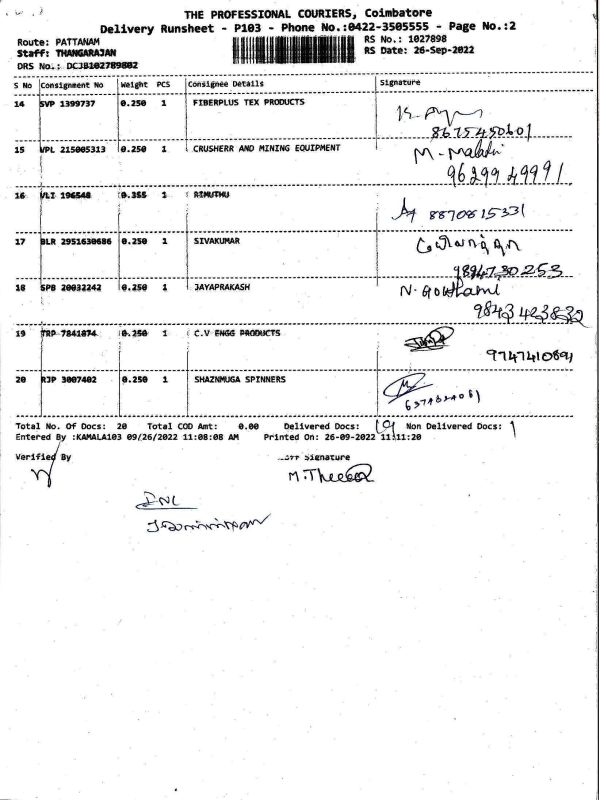 THE PROFESSIONAL COURIERS, Coimbatore
Delivery Runsheet - P103 - Phone No.:0422-3505555 - Page No.:2
Route: PATTANAM RS No.: 1027898
Staff: THANGARAJAN RS Date: 26-Sep-2022
DRS No.: DCJB102789802
S No Consignment No Weight PCS Consignee Details Signature
14 SVP 1399737 0.250 1 FIBERPLUS TEX PRODUCTS
8675450601
15 VPL 215005313 0.250 1 CRUSHERR AND MINING EQUIPMENT M. Malathi
9629949991
16 VLI 196548 0.355 1 RIMUTHU
8870815331
17 BLR 2951630686 0.250 1 SIVAKUMAR
9894730253
18 SPB 20032242 0.250 1 JAYAPRAKASH N. Gowthami
9843423832
19 TRP 7841874 0.250 1 C.V ENGG PRODUCTS
9747410891
20 RJP 3007402 0.250 1 SHAZNMUGA SPINNERS
Total No. Of Docs: 20 Total COD Amt: 0.00 Delivered Docs: 19 Non Delivered Docs: 1
Entered By :KAMALA103 09/26/2022 11:08:08 AM Printed On: 26-09-2022 11:11:20
Verified By Signature